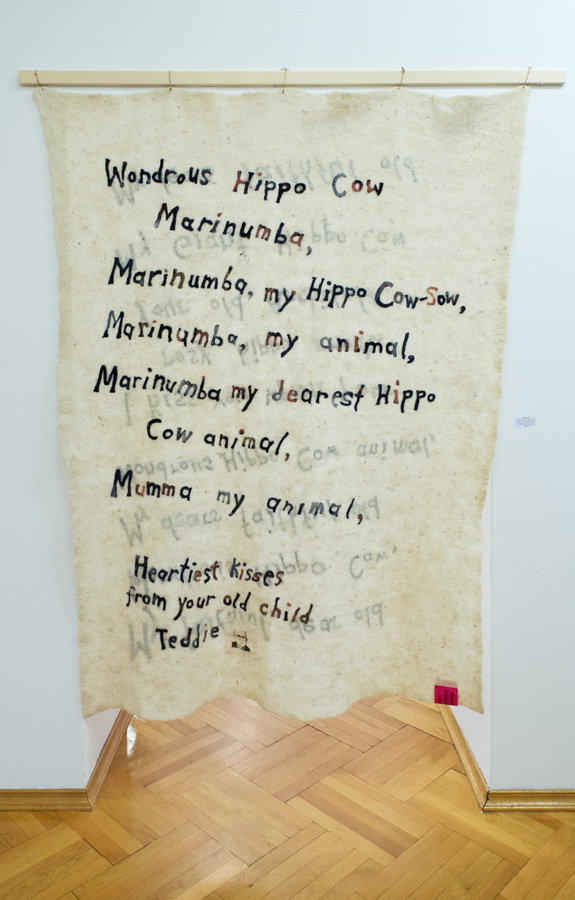 Wondrous Hippo Cow
Marinumba,
Marinumba, my Hippo Cow-Sow,
Marinumba, my animal,
Marinumba my dearest Hippo
Cow animal,
Mumma my animal,
Heartiest kisses
from your old child
Teddie